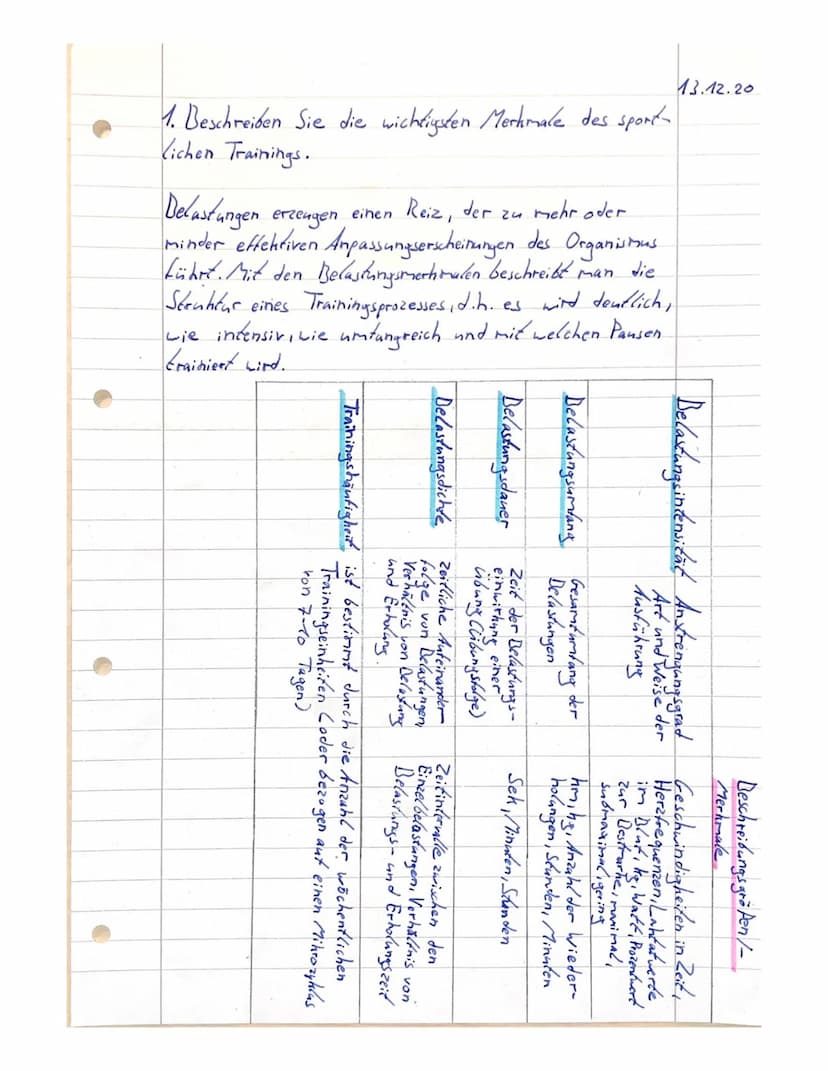 13.12.20
1. Beschreiben Sie die wichtigsten Merkmale des sport-
lichen Trainings.
Belastungen erzeugen einen Reiz, der zu mehr oder
minder effektiven Anpassungserscheinungen des Organismus
führt. Mit den Belastungsmerkmalen beschreibt man die
Struktur eines Trainingsprozesses, d.h. es wird deutlich,
wie intensiv, wie umfangreich und mit welchen Pausen
trainiert wird.
Beschreibungsgrößen/-
Merkmale
Belastungsintensität
Anstrengungsgrad
Art und Weise der
Ausführung
Geschwindigkeiten in Zeit,
Herzfrequenzen, Laktatwerte
im Blut, kg, Watt, Prozentwert
zur Bestmarke, maximal,
submaximal, gering
Belastungsumfang
Gesamtumfang der
Belastungen
km, kg, Anzahl der Wieder-
holungen, Stunden, Minuten
Belastungsdauer
Zeit der Belastungs-
einwirkung einer
Übung (Übungsfolge)
Sek, Minuten, Stunden
Belastungsdichte
zeitliche Aufeinander-
folge von Belastungen,
Verhältnis von Belastung
und Erholung.
Zeitintervalle zwischen den
Einzelbelastungen, Verhältnis von
Belastungs- und Erholungszeit
Trainingshäufigkeit
ist bestimmt durch die Anzahl der wöchentlichen
Trainingseinheiten (oder bezogen auf einen Mikrozyklus
von 7-10 Tagen)